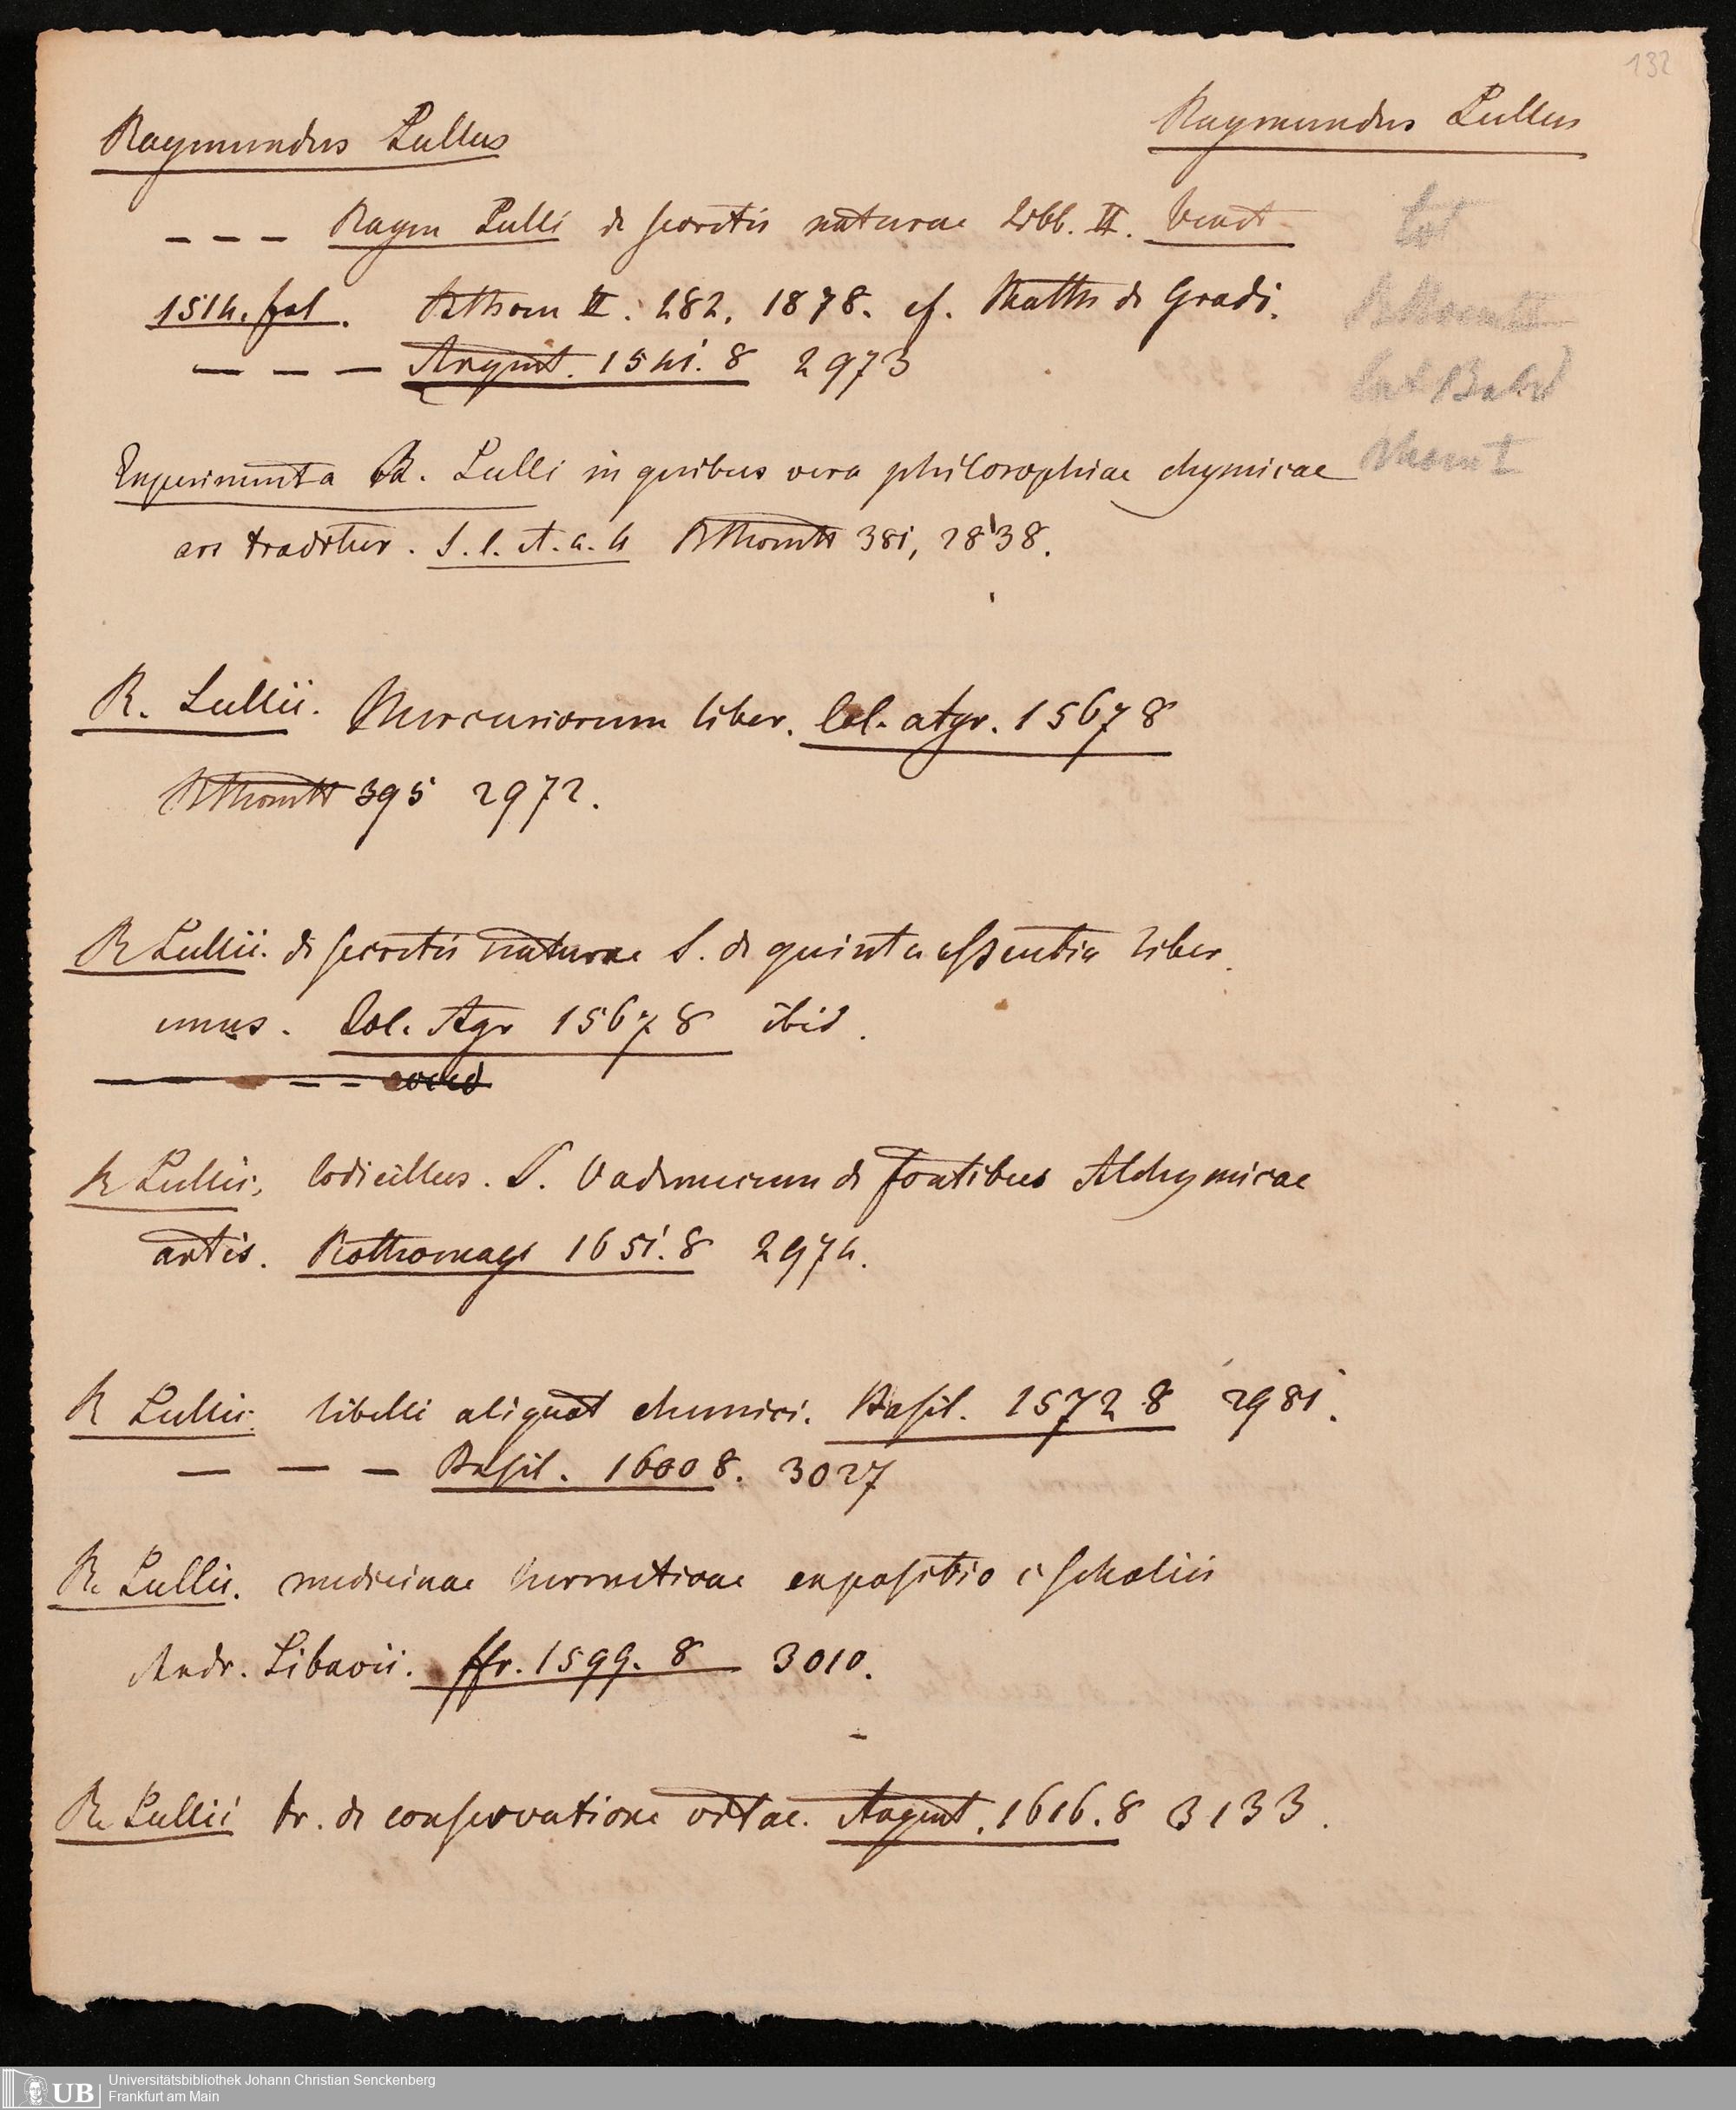 132
Raymundus Lullus
Raymundus Lullus
– – – Raym Lulli de secretis naturae Libb. II. Venet
1514. fol. BThom II. 282. 1878. cf. Matth de Gradi.
– – – Argent. 1541. 8 2973
Experimenta R. Lulli in quibus vera philosophiae chymicae
ars traditur. S. l. et. a. 4 BThomII 381, 2838.
R. Lullii. Mercuriorum liber. Col. Agr. 1567 8
BThomII 395 2972.
R Lullii. de secretis naturae s. de quinta essentia liber
unus. Col. Agr 1567 8 ibid.
R Lullii, Codicillus. S. Vademecum de fontibus Alchymicae
artis. Rothomagi 1651. 8 2974.
R Lullii. libelli aliquot chemici. Basil. 1572 8 2981.
– – – Basil. 1600 8. 3027
R. Lullii. medicinae hermeticae expositio c scholiis
Andr. Libavii. ffr. 1599. 8 3010.
R. Lullii tr. de conservatione vitae. Argent. 1616. 8 3133.
UB
Universitätsbibliothek Johann Christian Senckenberg
Frankfurt am Main